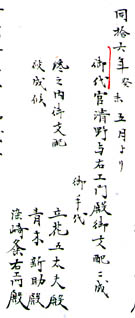 同拾六年癸未五月より
御代官清野与右エ門殿御支配ニ成
御手代
立花五太夫殿
青木新助殿
篠崎条右エ門殿
後之内御支配
被成候